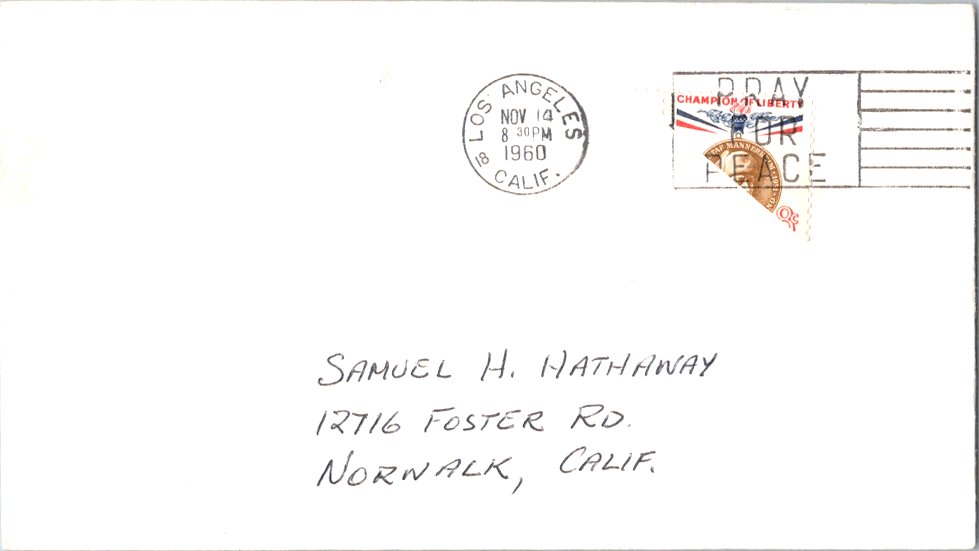 LOS ANGELES
NOV 14
8 30 PM
1960
18 CALIF.
PRAY
FOR
PEACE
CHAMPION OF LIBERTY
8c
SAMUEL H. HATHAWAY
12716 FOSTER RD.
NORWALK, CALIF.